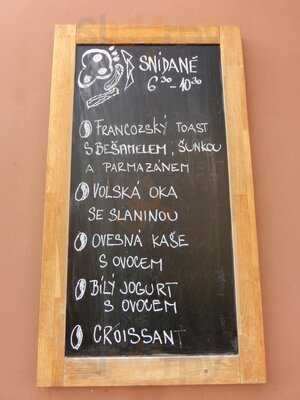 SNÍDANĚ
6³⁰-10³⁰
FRANCOZSKÝ TOAST
S BEŠAMELEM, ŠUNKOU
A PARMAZÁNEM
VOLSKÁ OKA
SE SLANINOU
OVESNÁ KAŠE
S OVOCEM
BÍLÝ JOGURT
S OVOCEM
CROISSANT